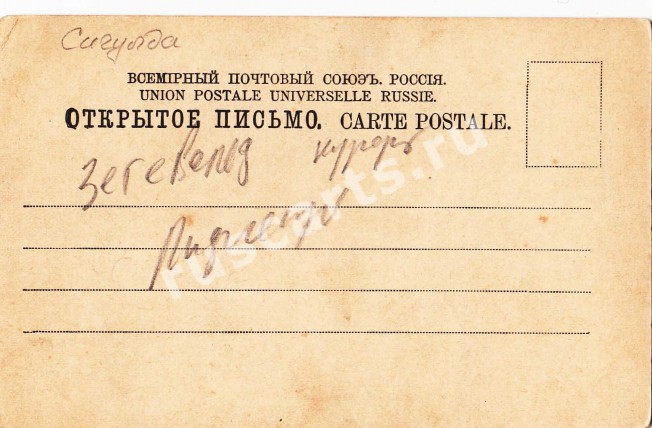 Сигулда
ВСЕМІРНЫЙ ПОЧТОВЫЙ СОЮЗЪ. РОССІЯ.
UNION POSTALE UNIVERSELLE RUSSIE.
ОТКРЫТОЕ ПИСЬМО. CARTE POSTALE.
Зегевольд курорт
Лифляндия
ruscarts.ru